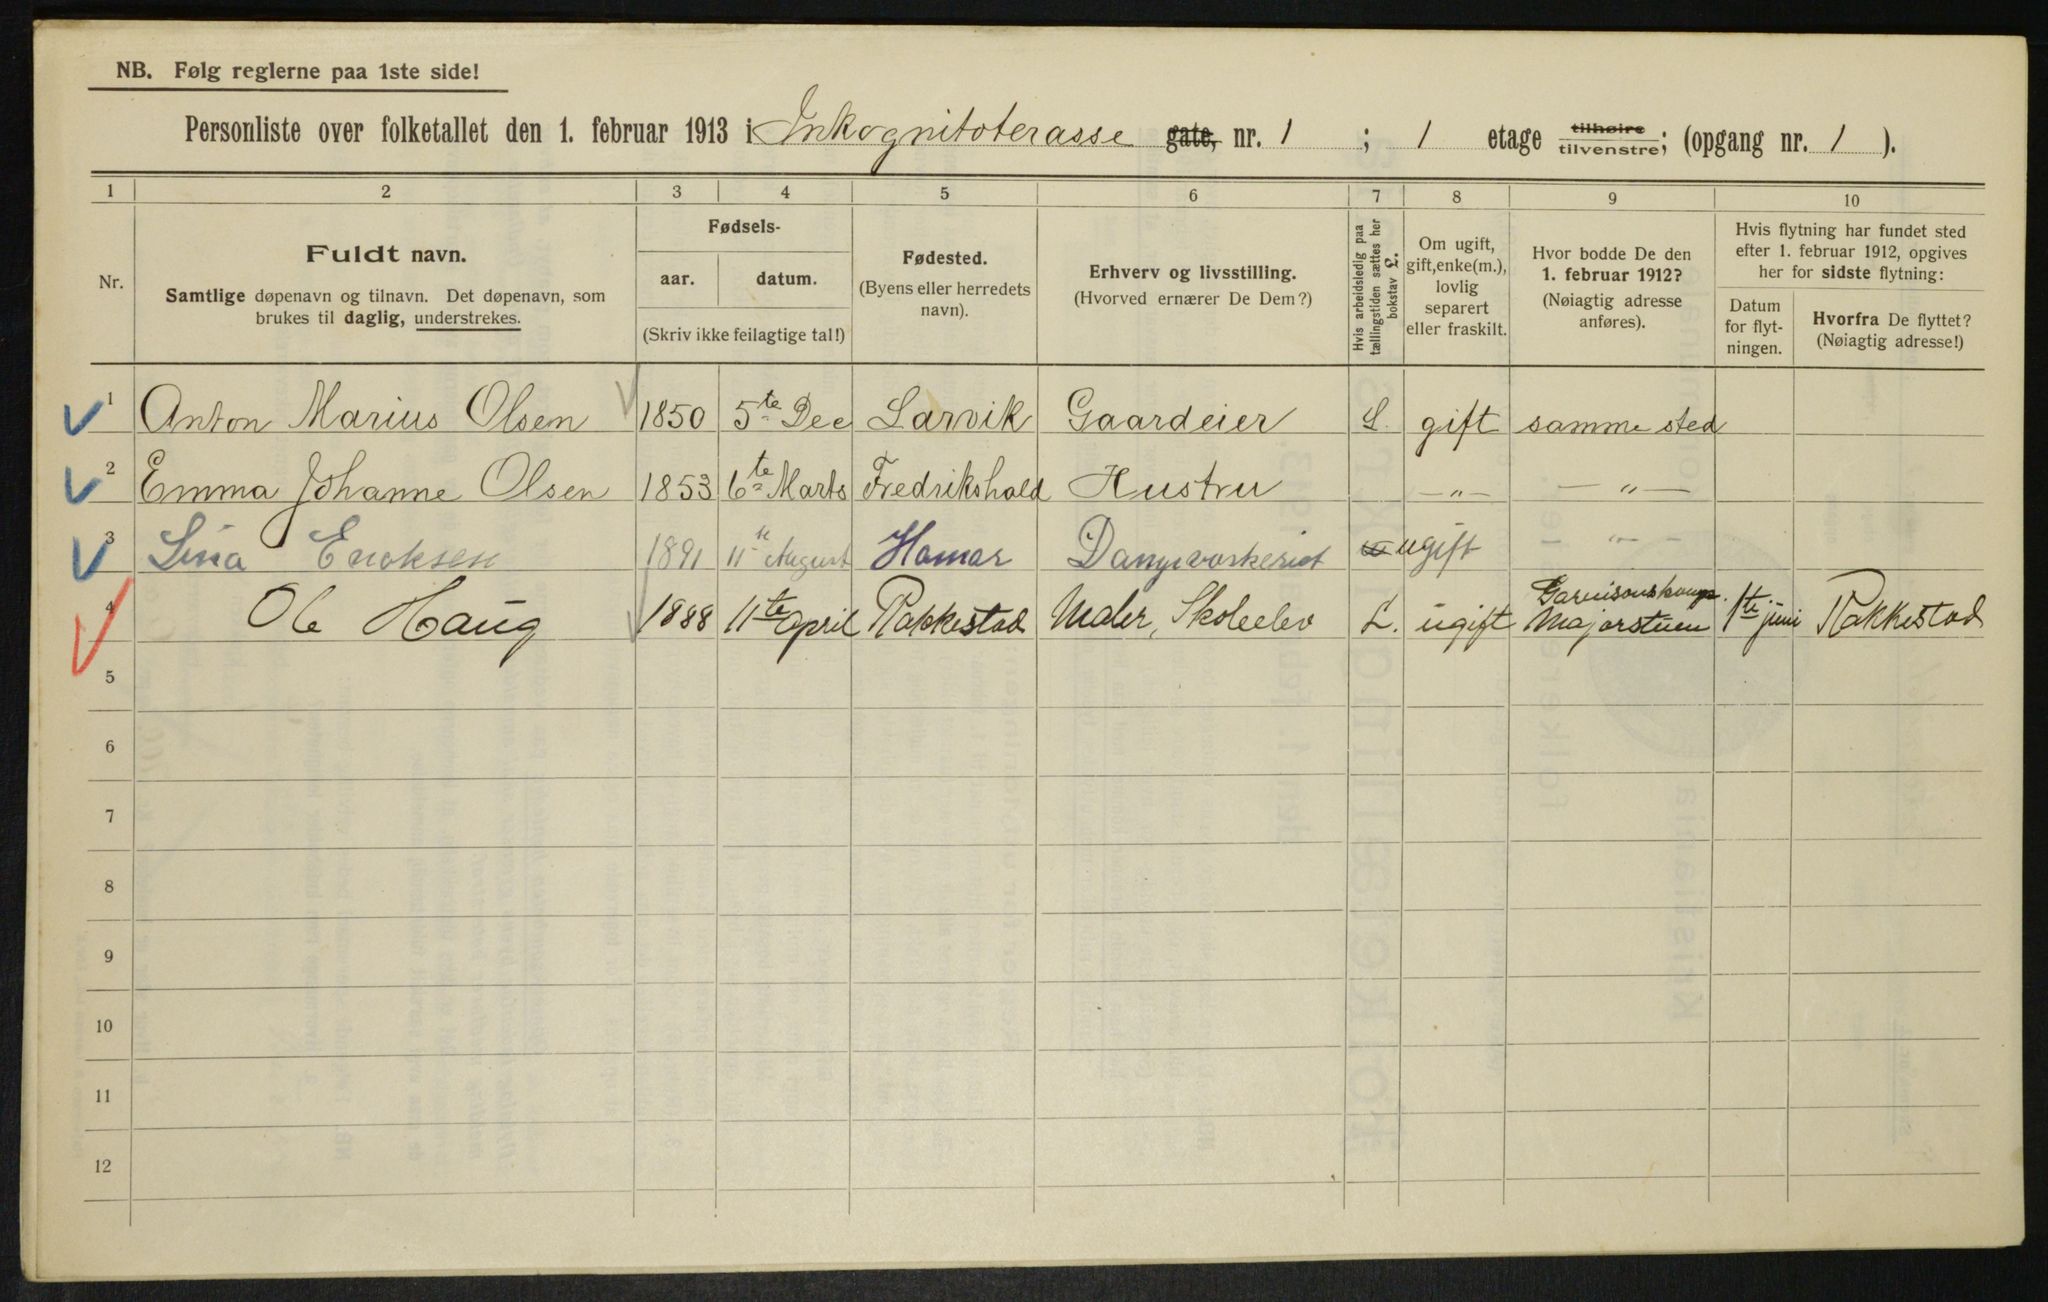 NB. Følg reglerne paa 1ste side!
Personliste over folketallet den 1. februar 1913 i Inkognitoterasse gate, nr. 1 ; 1 etage tilhøire tilvenstre; (opgang nr. 1 ).
1 2 3 4 5 6 7 8 9 10
Nr.
Fuldt navn.
Samtlige døpenavn og tilnavn. Det døpenavn, som
brukes til daglig, understrekes.
Fødsels-
aar. datum.
(Skriv ikke feilagtige tal!)
Fødested.
(Byens eller herredets
navn).
Erhverv og livsstilling.
(Hvorved ernærer De Dem?)
Hvis arbeidsledig paa
tællingstiden sættes her
bokstav L.
Om ugift,
gift, enke(m.),
lovlig
separert
eller fraskilt.
Hvor bodde De den
1. februar 1912?
(Nøiagtig adresse
anføres).
Hvis flytning har fundet sted
efter 1. februar 1912, opgives
her for sidste flytning:
Datum
for flyt-
ningen.
Hvorfra De flyttet?
(Nøiagtig adresse!)
1 Anton Marius Olsen 1850 5te Dec Larvik Gaardeier L. gift samme sted
2 Emma Johanne Olsen 1853 6te Marts Fredrikshald Hustru —„— —„—
3 Lina Eriksen 1891 11te August Hamar ugift —„—
4 Ole Haug 1888 11te april Rakkestad Maler, Skoleelev L. ugift Majorstuen 1te juni Rakkestad
5
6
7
8
9
10
11
12